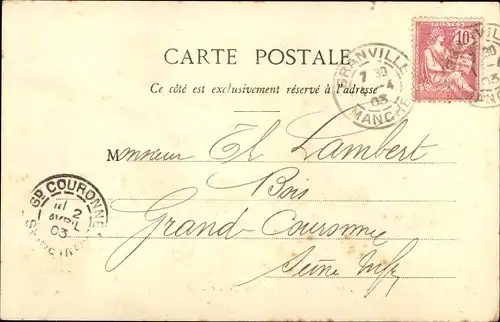 CARTE POSTALE
Ce côté est exclusivement réservé à l'adresse
GRANVILLE
7 30
-4
03
MANCHE
POSTES
10
Monsieur Th Lambert
Bois
Grand-Couronne
Seine Infre
GD COURONNE
2
AVRIL
03